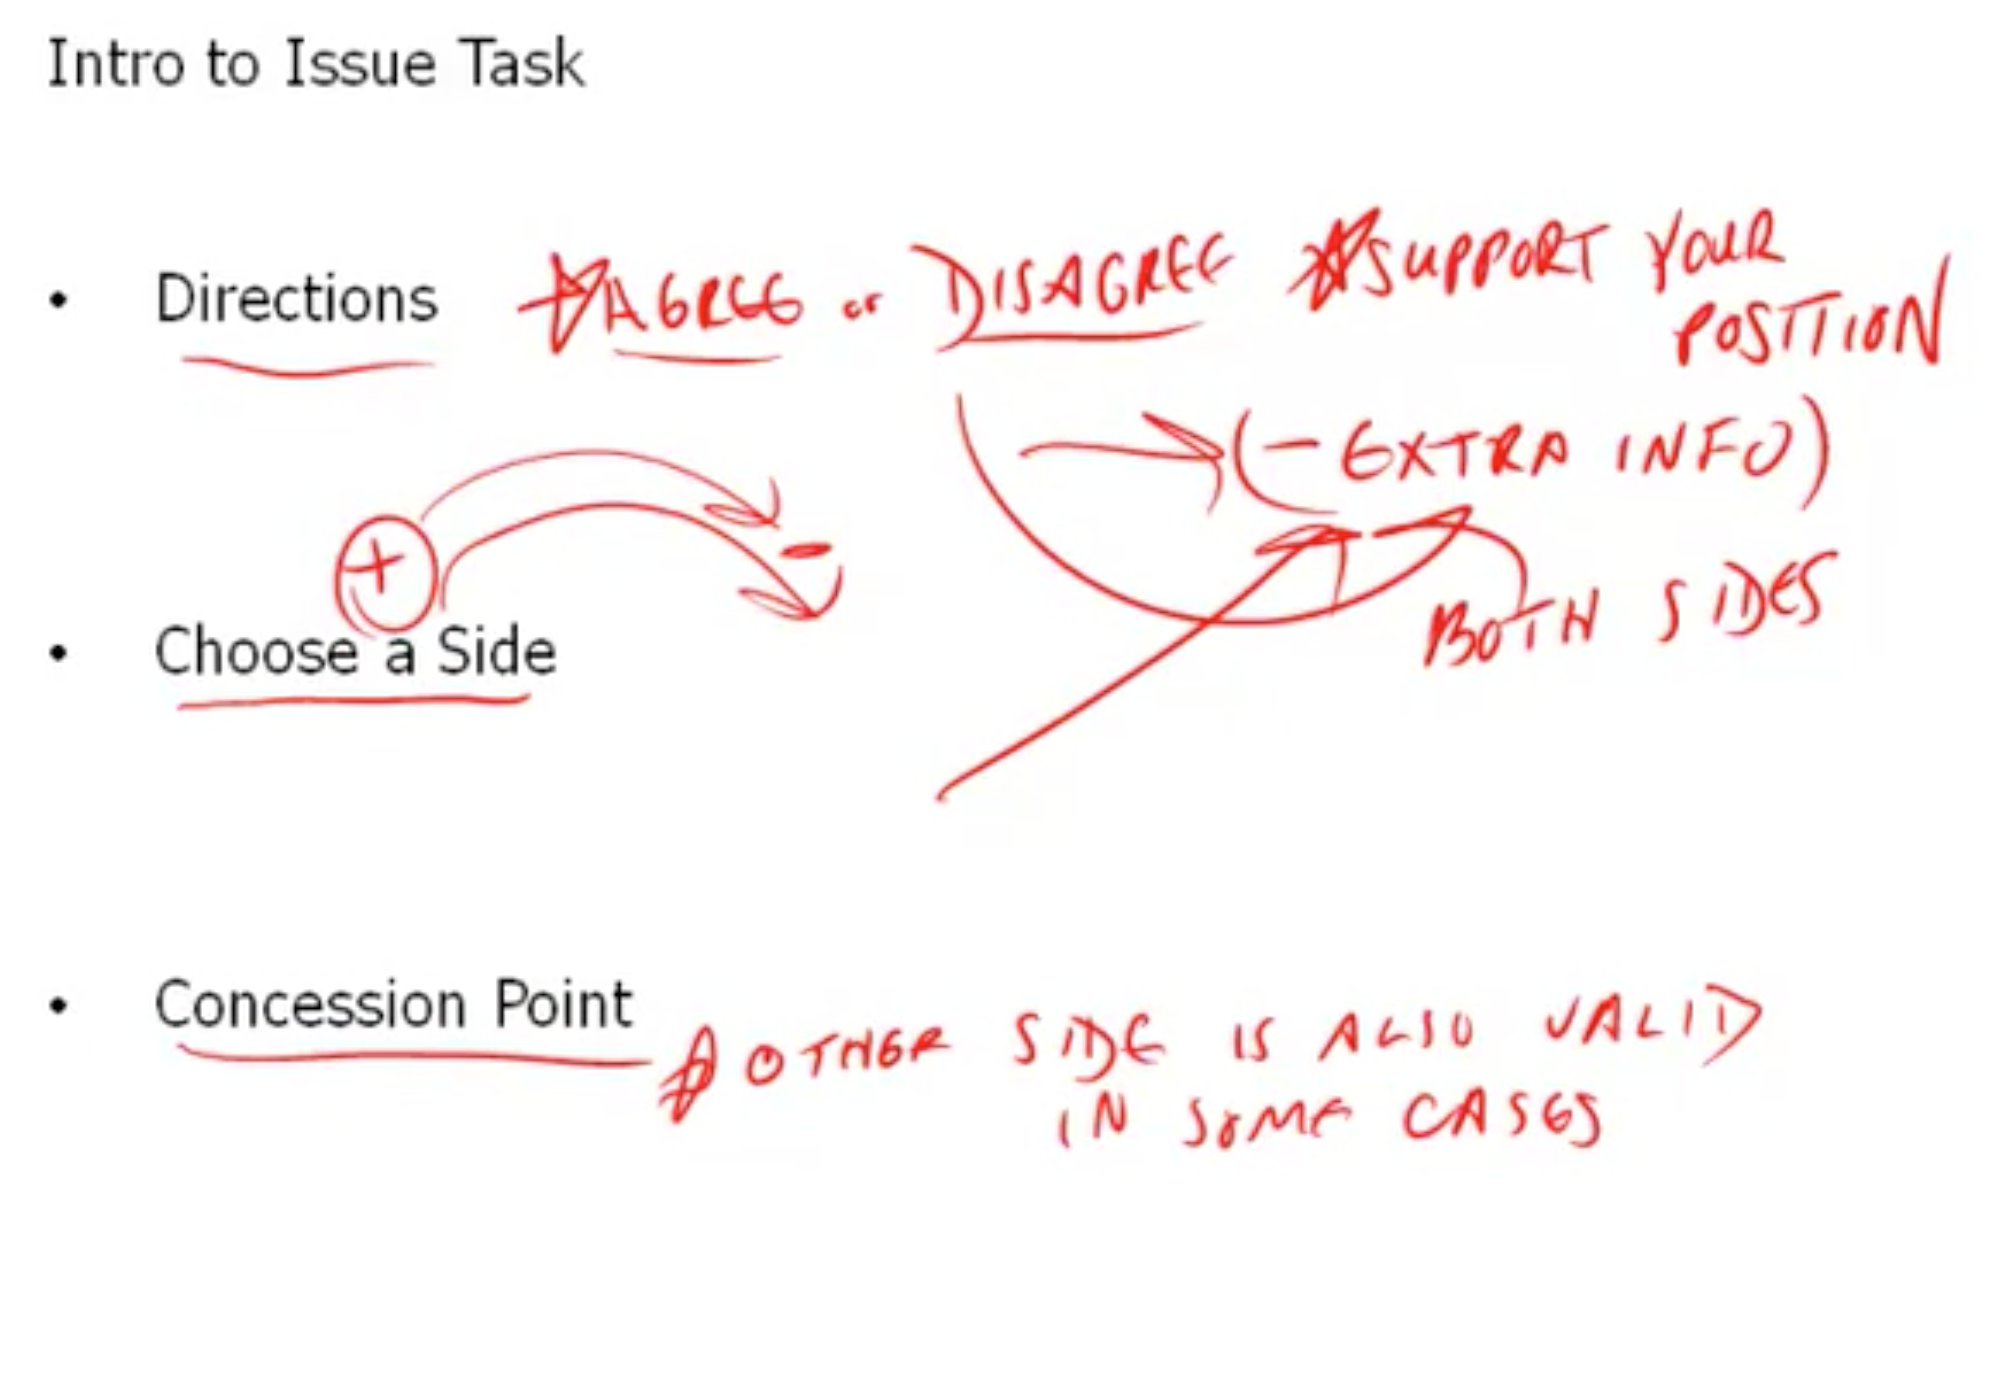 Intro to Issue Task
• Directions AGREE or DISAGREE SUPPORT YOUR
POSITION
(- EXTRA INFO)
+ -
BOTH SIDES
• Choose a Side
• Concession Point OTHER SIDE IS ALSO VALID
IN SOME CASES